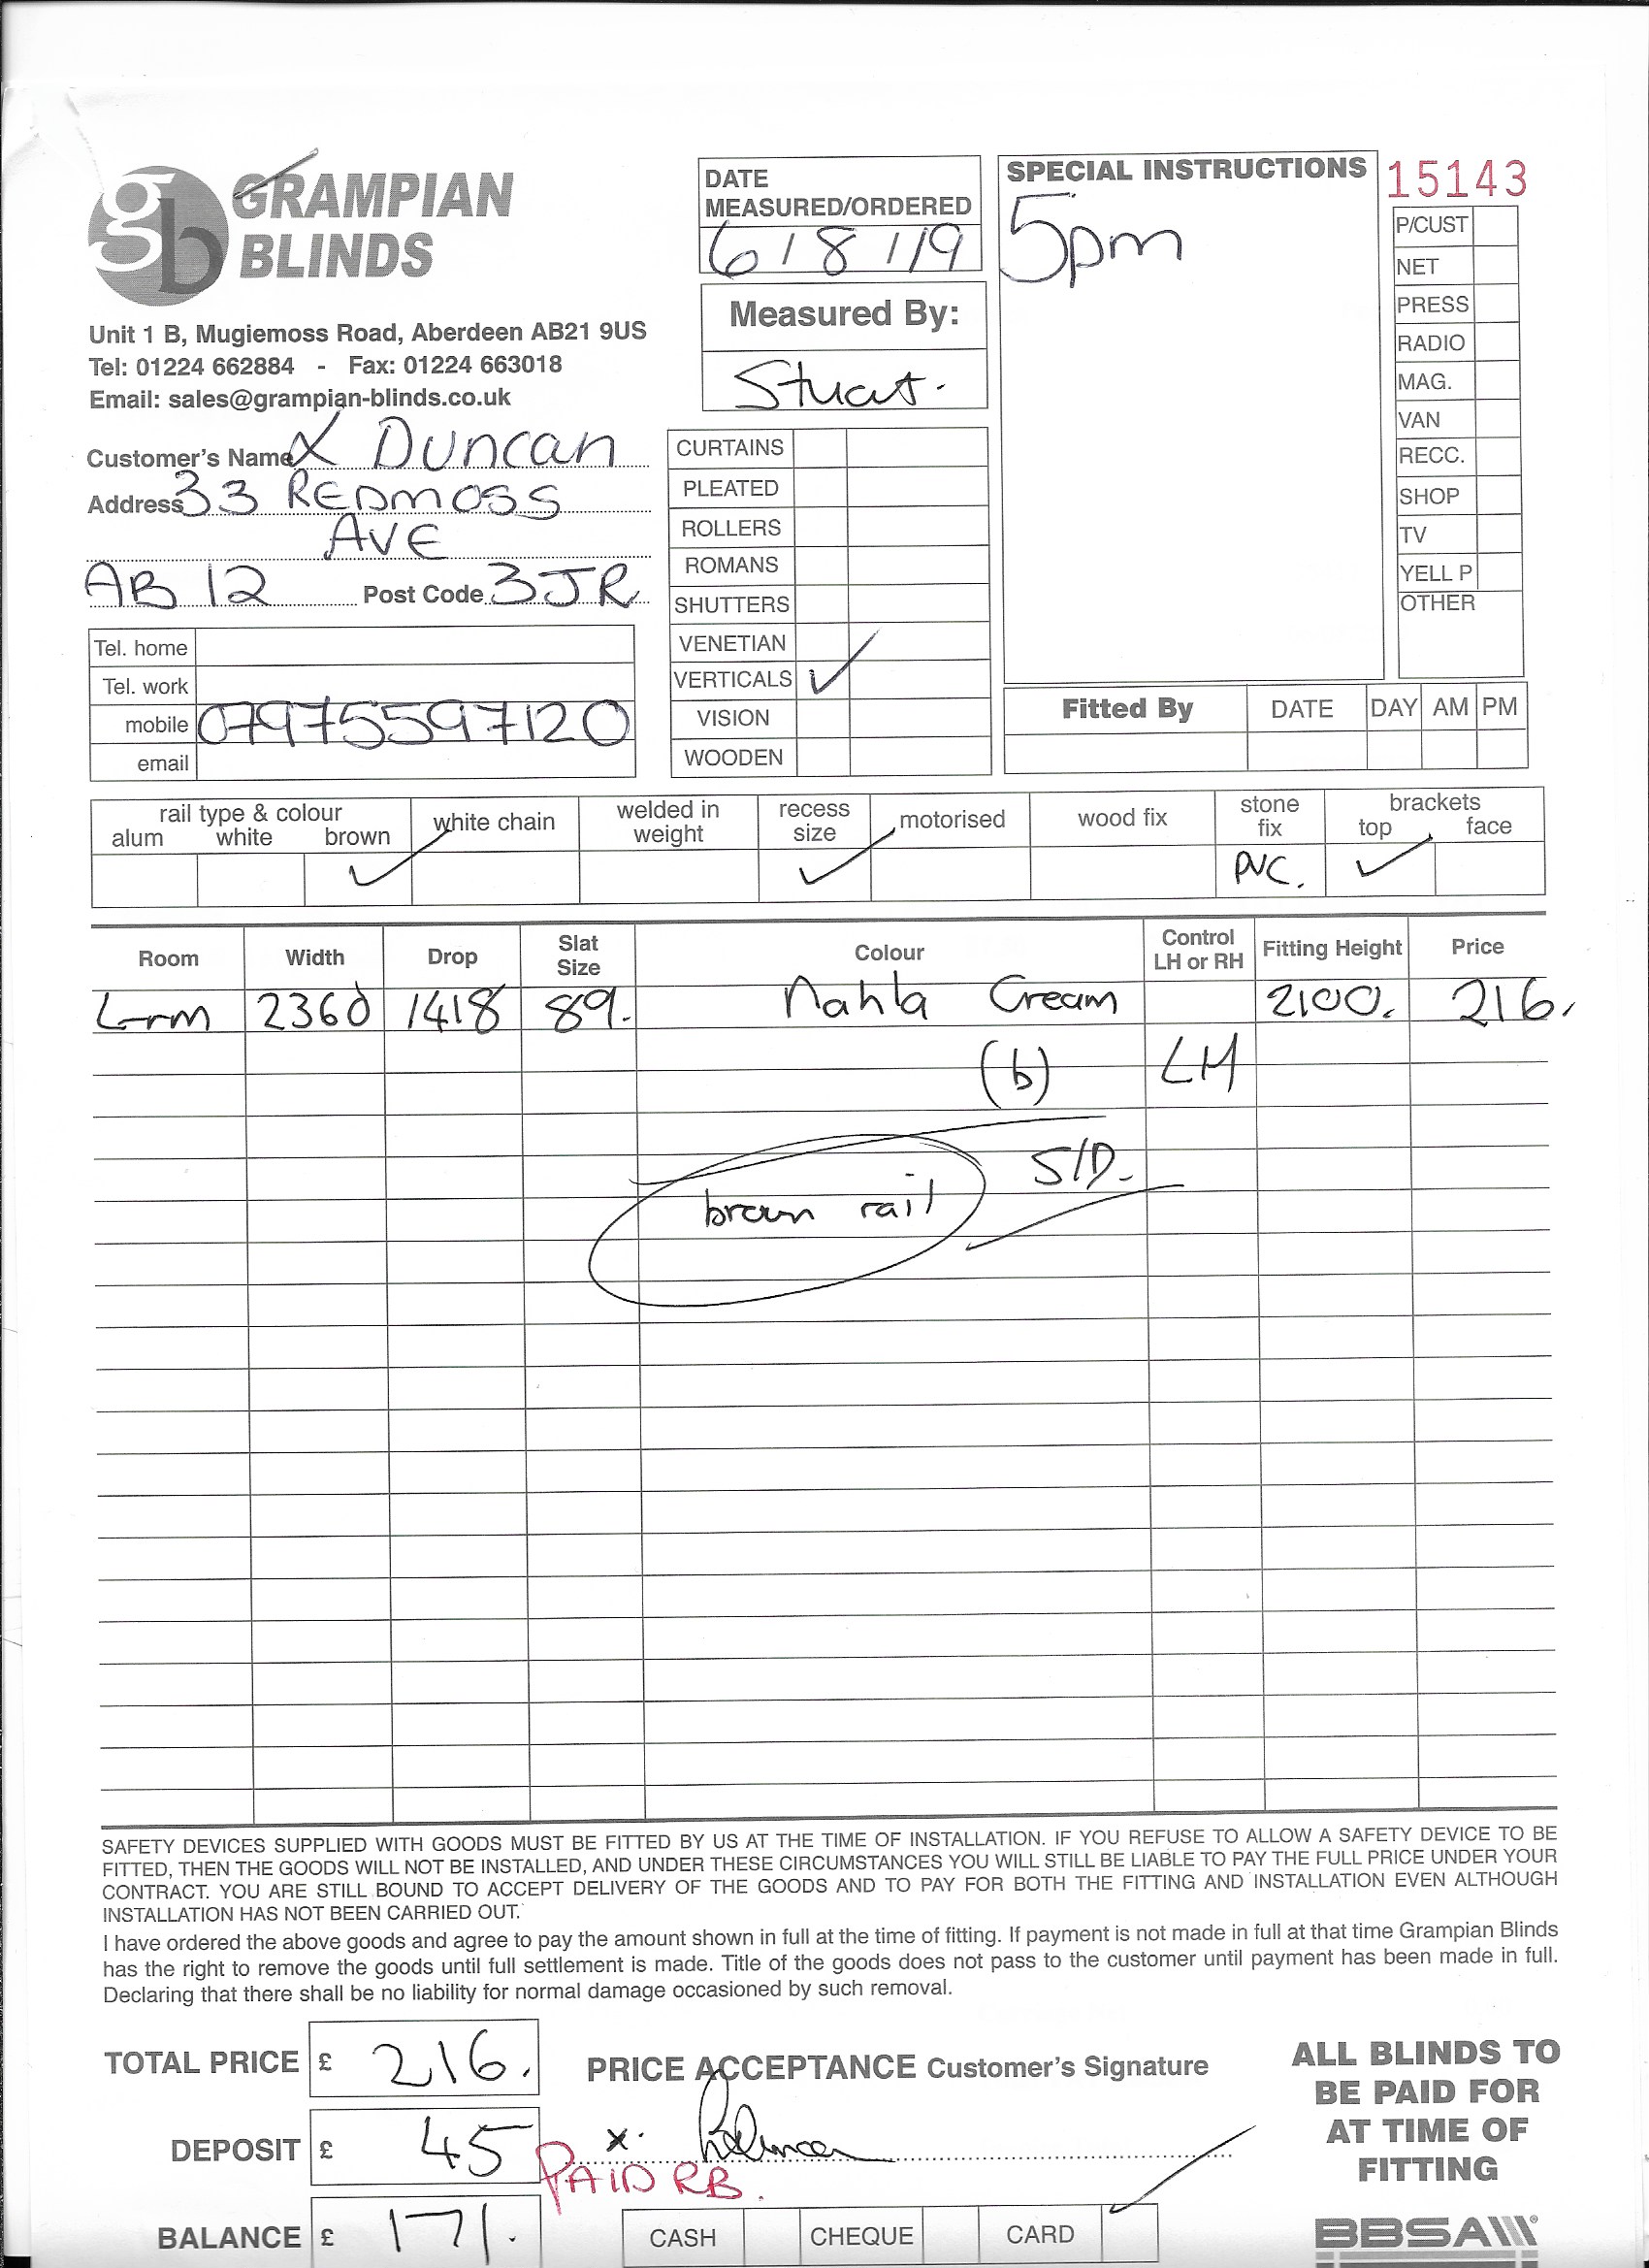 GRAMPIAN
BLINDS
Unit 1 B, Mugiemoss Road, Aberdeen AB21 9US
Tel: 01224 662884 - Fax: 01224 663018
Email: sales@grampian-blinds.co.uk
Customer's Name Duncan
Address 33 REDMOSS
AVE
AB 12 Post Code 3JR
Tel. home
Tel. work
mobile 07975597120
email
DATE
MEASURED/ORDERED
6/8/19
Measured By:
Stuart.
CURTAINS
PLEATED
ROLLERS
ROMANS
SHUTTERS
VENETIAN
VERTICALS ✓
VISION
WOODEN
SPECIAL INSTRUCTIONS
5pm
15143
P/CUST
NET
PRESS
RADIO
MAG.
VAN
RECC.
SHOP
TV
YELL P
OTHER
Fitted By DATE DAY AM PM
rail type & colour
alum white brown ✓
white chain
welded in weight
recess size ✓
motorised
wood fix
stone fix PVC.
brackets
top ✓ face
Room Width Drop Slat Size Colour Control LH or RH Fitting Height Price
L-rm 2360 1418 89. Nahla Cream 2100. 216.
(b) LH
S/D.
brown rail
SAFETY DEVICES SUPPLIED WITH GOODS MUST BE FITTED BY US AT THE TIME OF INSTALLATION. IF YOU REFUSE TO ALLOW A SAFETY DEVICE TO BE
FITTED, THEN THE GOODS WILL NOT BE INSTALLED, AND UNDER THESE CIRCUMSTANCES YOU WILL STILL BE LIABLE TO PAY THE FULL PRICE UNDER YOUR
CONTRACT. YOU ARE STILL BOUND TO ACCEPT DELIVERY OF THE GOODS AND TO PAY FOR BOTH THE FITTING AND INSTALLATION EVEN ALTHOUGH
INSTALLATION HAS NOT BEEN CARRIED OUT.
I have ordered the above goods and agree to pay the amount shown in full at the time of fitting. If payment is not made in full at that time Grampian Blinds
has the right to remove the goods until full settlement is made. Title of the goods does not pass to the customer until payment has been made in full.
Declaring that there shall be no liability for normal damage occasioned by such removal.
TOTAL PRICE £ 216.
DEPOSIT £ 45
BALANCE £ 171.
PRICE ACCEPTANCE Customer's Signature
x.
PAID RB.
CASH CHEQUE CARD ✓
ALL BLINDS TO
BE PAID FOR
AT TIME OF
FITTING
BBSA